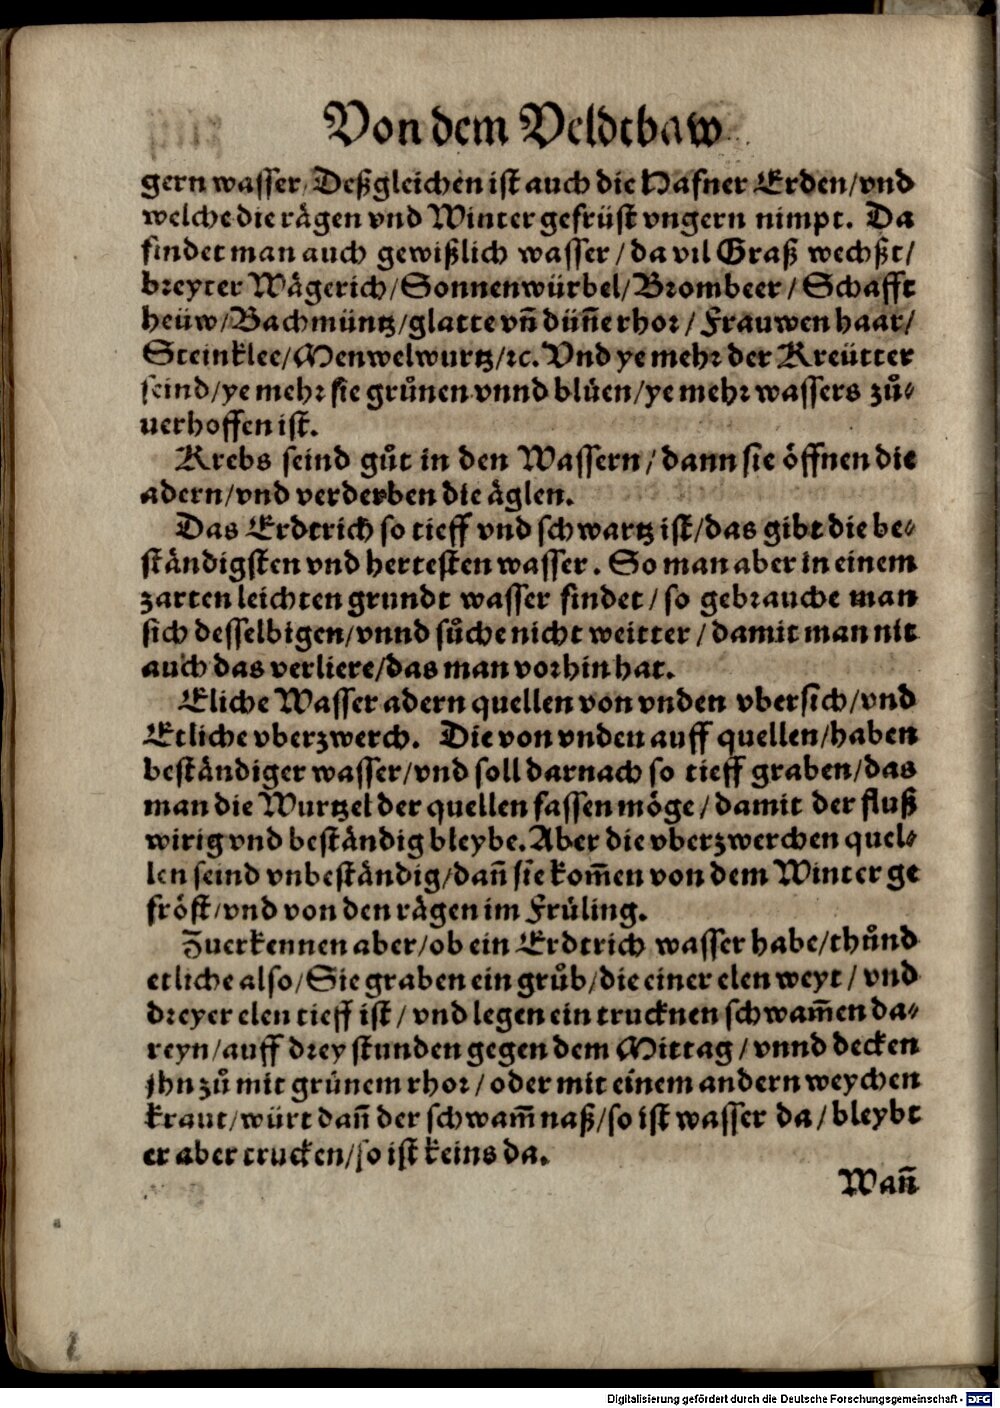 Von dem Veldtbaw
gern wasser/ Deßgleichen ist auch die Hafner Erden/vnd
welche die rägen vnd Winter gefrüst vngern nimpt. Da
findet man auch gewißlich wasser/da vil Graß wechßt/
breyter Wägerich/Sonnenwürbel/Brombeer/Schafft
heüw/Bachmüntz/glatte vn̄ dün̄e rhor/Frauwen haar/
Steinklee/Menwelwurtz/ꝛc. Vnd ye mehr der Kreütter
seind/ye mehr sie grůnen vnnd blůen/ye mehr wassers zů⸗
uerhoffen ist.
Krebs seind gůt in den Wassern/dann sie öffnen die
adern/vnd verderben die äglen.
Das Erdtrich so tieff vnd schwartz ist/das gibt die be⸗
ständigsten vnd hertesten wasser. So man aber in einem
zarten leichten grundt wasser findet/so gebrauche man
sich desselbigen/vnnd sůche nicht weitter/damit man nit
auch das verliere/das man vorhin hat.
Etliche Wasser adern quellen von vnden vbersich/vnd
Etliche vberzwerch. Die von vnden auff quellen/haben
beständiger wasser/vnd soll darnach so tieff graben/das
man die Wurtzel der quellen fassen möge/damit der fluß
wirig vnd beständig bleybe. Aber die vberzwerchen quel⸗
len seind vnbeständig/dañ sie kom̄en von dem Winter ge
fröst/vnd von den rägen im Früling.
Zuerkennen aber/ob ein Erdtrich wasser habe/thůnd
etliche also/Sie graben ein grůb/die einer elen weyt/vnd
dreyer elen tieff ist/vnd legen ein trucknen schwam̄en da⸗
reyn/auff drey stunden gegen dem Mittag/vnnd decken
jhn zů mit grünem rhor/oder mit einem andern weychen
kraut/würt dañ der schwam̄ naß/so ist wasser da/bleybt
er aber trucken/so ist keins da.
Wañ
Digitalisierung gefördert durch die Deutsche Forschungsgemeinschaft - DFG